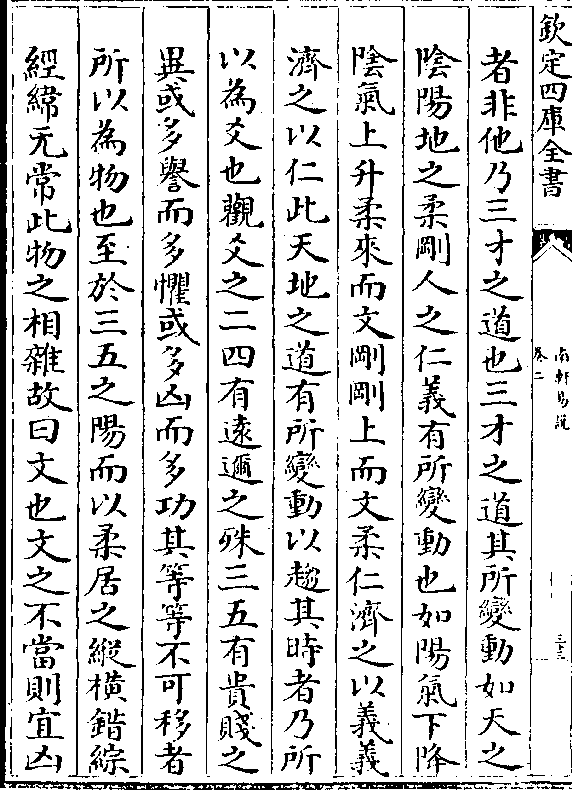 欽定四庫全書
南軒易說
卷二
三三
者非他乃三才之道也三才之道其所變動如天之
陰陽地之柔剛人之仁義有所變動也如陽氣下降
陰氣上升柔來而文剛剛上而文柔仁濟之以義義
濟之以仁此天地之道有所變動以趨其時者乃所
以為爻也觀爻之二四有逺邇之殊三五有貴賤之
異或多譽而多懼或多凶而多功其等等不可移者
所以為物也至於三五之陽而以柔居之縱橫錯綜
經緯无常此物之相雜故曰文也文之不當則宜凶